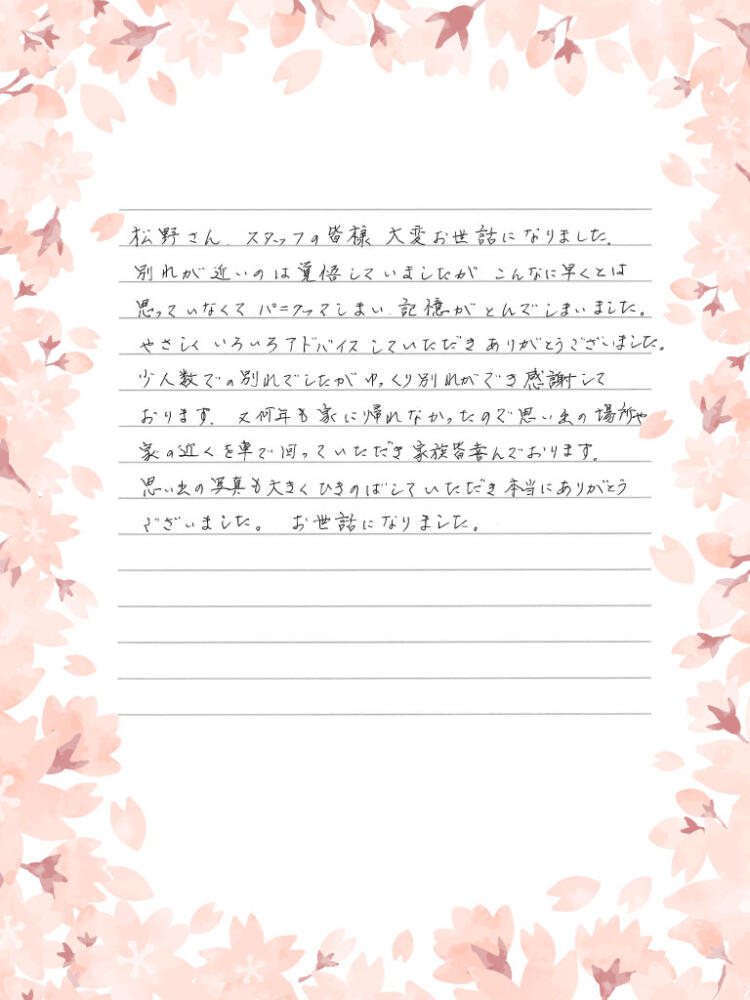 松野さん、スタッフの皆様 大変お世話になりました。
別れが近いのは覚悟していましたが こんなに早くとは
思っていなくて パニクってしまい、記憶がとんでしまいました。
やさしく いろいろアドバイスしていただき ありがとうございました。
少人数での別れでしたが ゆっくり別れができ 感謝して
おります。又何年も家に帰れなかったので思い出の場所や
家の近くを車で回っていただき 家族皆喜んでおります。
思い出の写真も大きくひきのばしていただき 本当にありがとう
ございました。 お世話になりました。